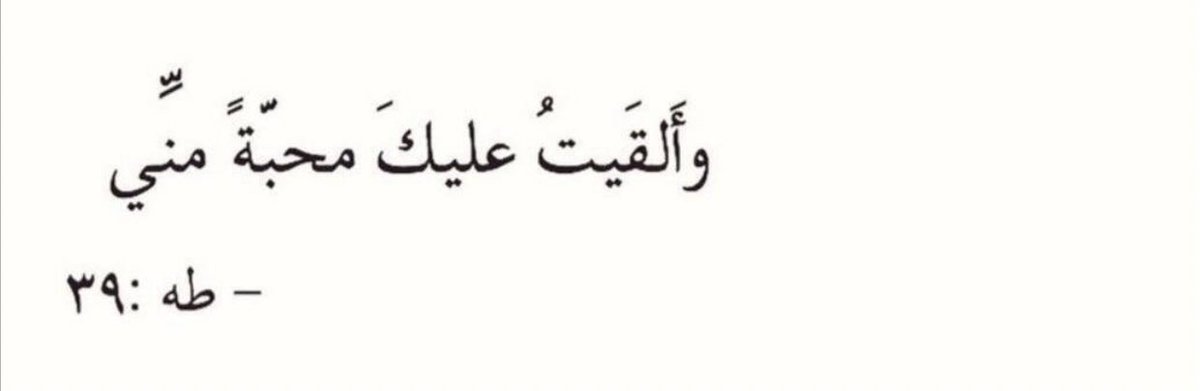 وأَلقَيتُ عليكَ محبّةً منِّي
– طه :٣٩